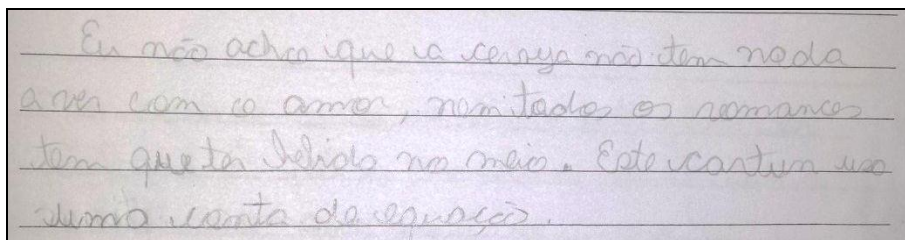 Eu não acho que a cerveja não tem nada
a ver com o amor, nem todos os romances
tem que ter bebida no meio. Este cartun usa
uma conta de equação.